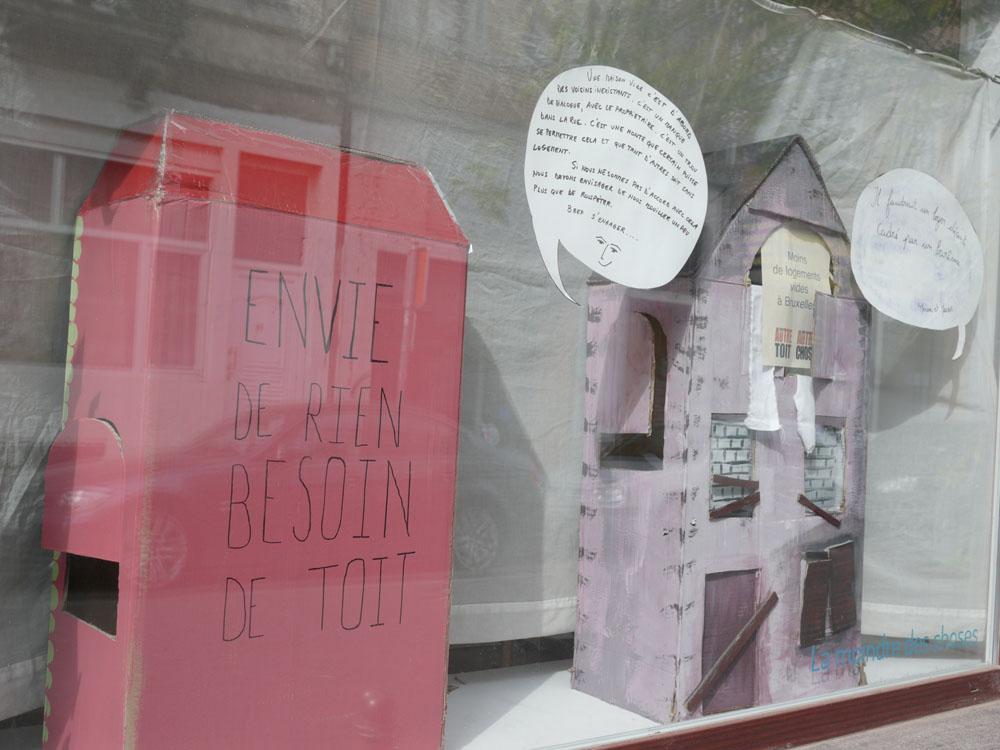 ENVIE
DE RIEN
BESOIN
DE TOIT
UNE MAISON VIDE C'EST D'ABORD
DES VOISINS INEXISTANTS. C'EST UN MANQUE
DE DIALOGUE, AVEC LE PROPRIETAIRE. C'EST UN TROU
DANS LA RUE. C'EST UNE HONTE QUE CERTAIN PUISSE
SE PERMETTRE CELA ET QUE TANT D'AUTRES SOIT SANS
LOGEMENT.
SI NOUS NE SOMMES PAS D'ACCORD AVEC CELA
NOUS DEVONS ENVISAGER DE NOUS MOUILLER UN PEU
PLUS QUE DE ROUSPETER.
BREF S'ENGAGER....
Moins
de logements
vides
à Bruxelles
AUTRE AUTRE
TOIT CHOS
Il faudrait un loyer décent
Cadré par un barème
La moindre des choses